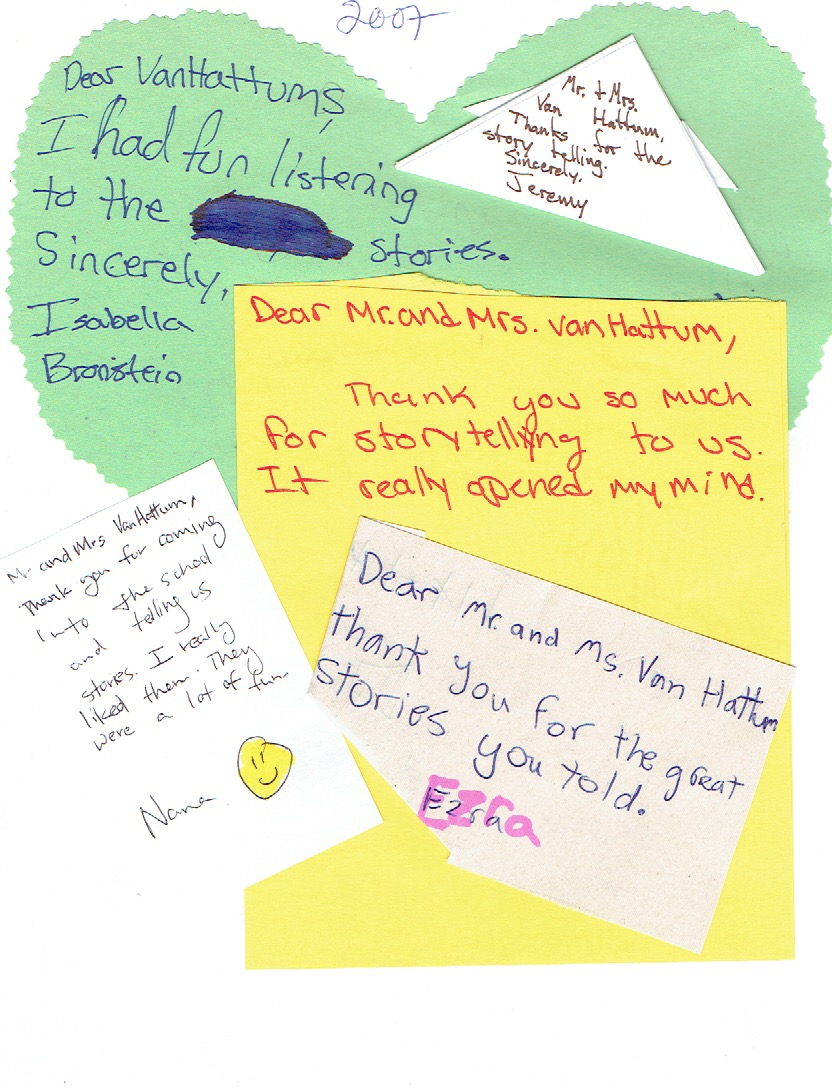 2007
Dear VanHattums,
I had fun listening
to the stories.
Sincerely,
Isabella
Bronstein
Mr. + Mrs.
Van Hattum,
Thanks for the
story telling.
Sincerely,
Jeremy
Dear Mr. and Mrs. Van Hattum,
Thank you so much
for storytelling to us.
It really opened my mind.
Mr and Mrs VanHattum,
Thank you for coming
into the school
and telling us
stories. I really
liked them. They
were a lot of fun.
Dear Mr. and Ms. Van Hattum
thank you for the great
stories you told.
Ezra